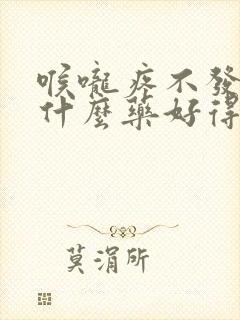 喉嚨疼不發
什麼藥好得
莫涓所